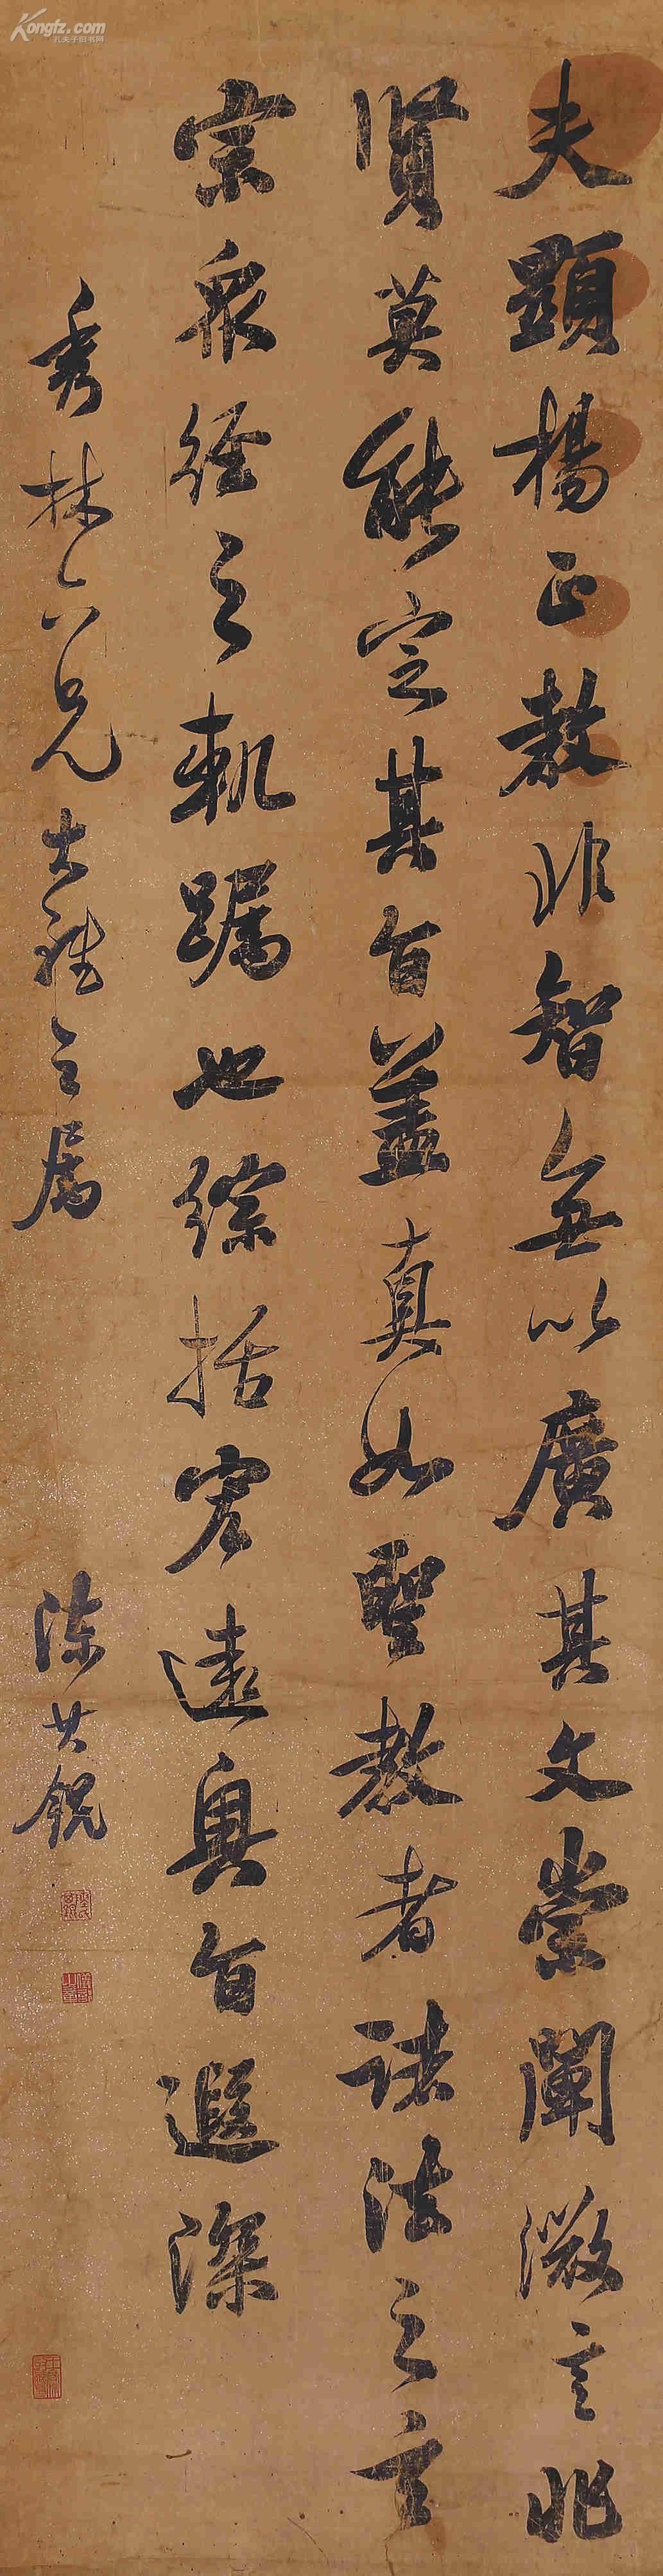 夫顯楊正教非智無以廣其文崇闡微言非
賢莫能定其旨蓋真如聖教者諸法之玄
宗眾經之軌躅也綜括宏遠奧旨遐深
秀林六兄大雅之屬
陳廿錕
Kongfz.com
孔夫子旧书网